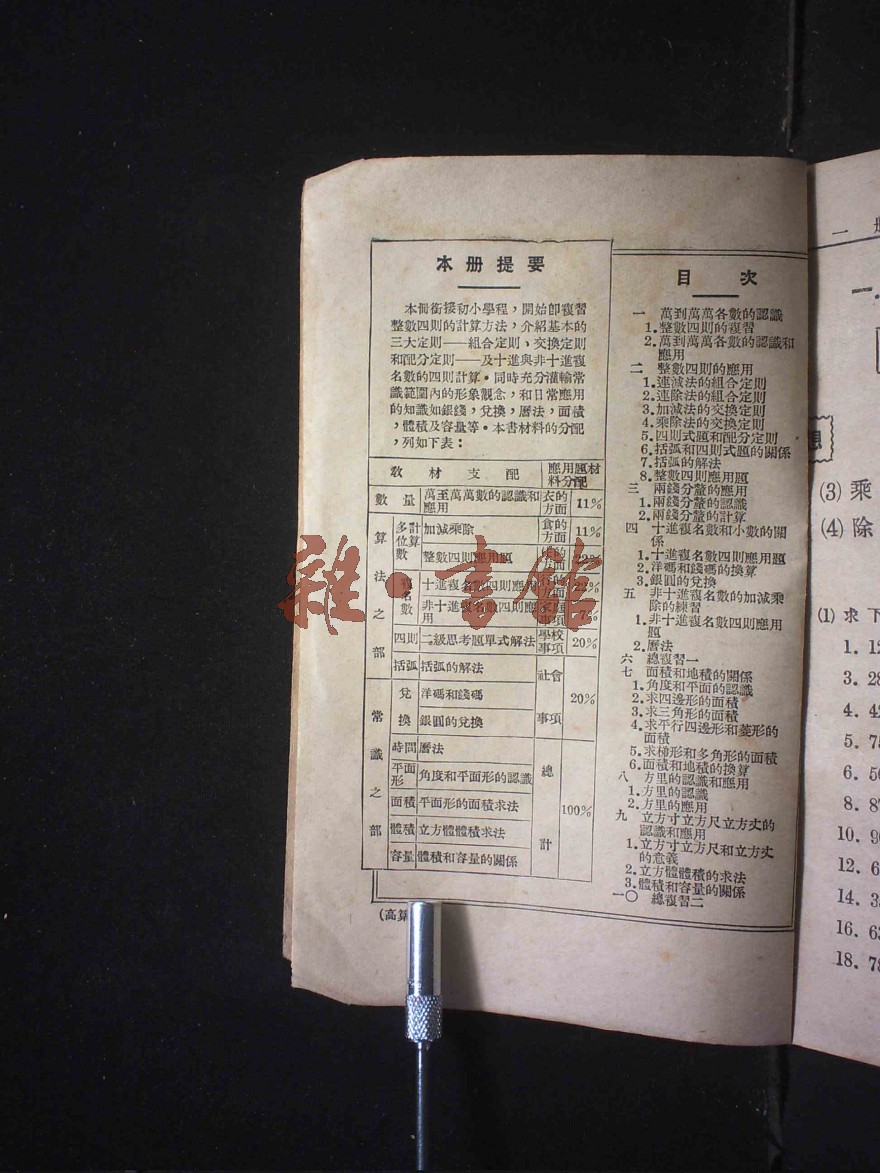 本册提要
本冊銜接初小學程，開始即複習
整數四則的計算方法，介紹基本的
三大定則——組合定則、交換定則
和配分定則——及十進與非十進複
名數的四則計算。同時充分灌輸常
識範圍內的形象觀念，和日常應用
的知識如銀錢，兌換，曆法，面積
，體積及容量等。本書材料的分配
，列如下表：
教材支配 應用題材料分配
數量 萬至萬萬數的認識和應用 衣的方面 11%
算法之部
多位數計算 加減乘除 食的方面 11%
整數四則應用題 方面
複名數 十進複名數四則應用
非十進複名數四則應用 事項 7%
四則 二級思考題單式解法 學校事項 20%
括弧 括弧的解法 社會事項 20%
常識之部
兌換 洋碼和錢碼
銀圓的兌換
時間 曆法 總計 100%
平面形 角度和平面形的認識
面積 平面形的面積求法
體積 立方體體積求法
容量 體積和容量的關係
(高算
目次
一 萬到萬萬各數的認識
1.整數四則的複習
2.萬到萬萬各數的認識和
應用
二 整數四則的應用
1.連減法的組合定則
2.連除法的組合定則
3.加減法的交換定則
4.乘除法的交換定則
5.四則式題和配分定則
6.括弧和四則式題的關係
7.括弧的解法
8.整數四則應用題
三 兩錢分釐的應用
1.兩錢分釐的認識
2.兩錢分釐的計算
四 十進複名數和小數的關
係
1.十進複名數四則應用題
2.洋碼和錢碼的換算
3.銀圓的兌換
五 非十進複名數的加減乘
除的練習
1.非十進複名數四則應用
題
2.曆法
六 總複習一
七 面積和地積的關係
1.角度和平面的認識
2.求四邊形的面積
3.求三角形的面積
4.求平行四邊形和菱形的
面積
5.求梯形和多角形的面積
6.面積和地積的換算
八 方里的認識和應用
1.方里的認識
2.方里的應用
九 立方寸立方尺立方丈的
認識和應用
1.立方寸立方尺和立方丈
的意義
2.立方體體積的求法
3.體積和容量的關係
一〇 總複習二
一 册
一.
(3) 乘
(4) 除
(1) 求下
1. 12
3. 28
4. 42
5. 75
6. 56
8. 87
10. 90
12. 6
14. 35
16. 63
18. 78
雜·書館